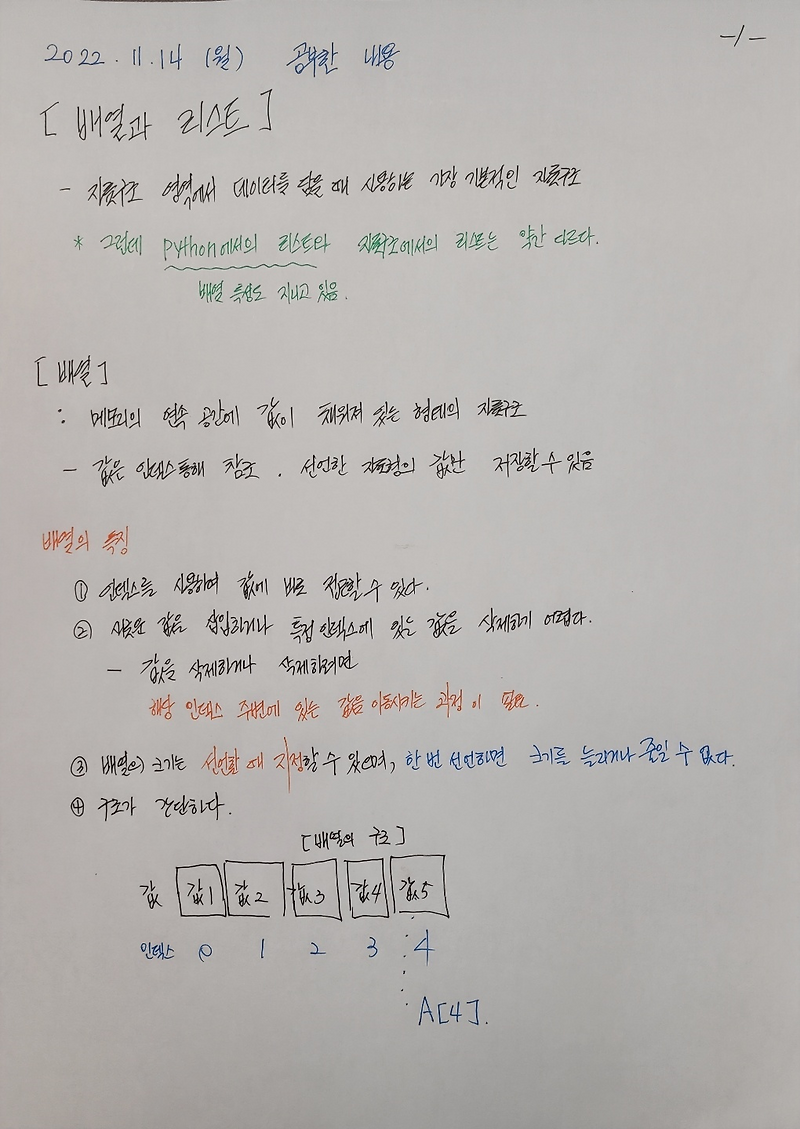 -1-
2022.11.14 (월) 공부한 내용
[배열과 리스트]
- 자료구조 영역에서 데이터를 담을 때 사용하는 가장 기본적인 자료구조
* 그런데 Python에서의 리스트와 자료구조에서의 리스트는 약간 다르다.
배열 특성도 지니고 있음.
[배열]
: 메모리의 연속 공간에 값이 채워져 있는 형태의 자료구조
- 값은 인덱스통해 참조. 선언한 자료형의 값만 저장할 수 있음
배열의 특징
① 인덱스를 사용하여 값에 바로 접근할 수 있다.
② 새로운 값을 삽입하거나 특정 인덱스에 있는 값을 삭제하기 어렵다.
- 값을 삭제하거나 삭제하려면
해당 인덱스 주변에 있는 값을 이동시키는 과정이 필요.
③ 배열의 크기는 선언할 때 지정할 수 있으며, 한 번 선언하면 크기를 늘리거나 줄일 수 없다.
④ 구조가 간단하다.
[배열의 구조]
값 값1 값2 값3 값4 값5
인덱스 0 1 2 3 4
A[4].